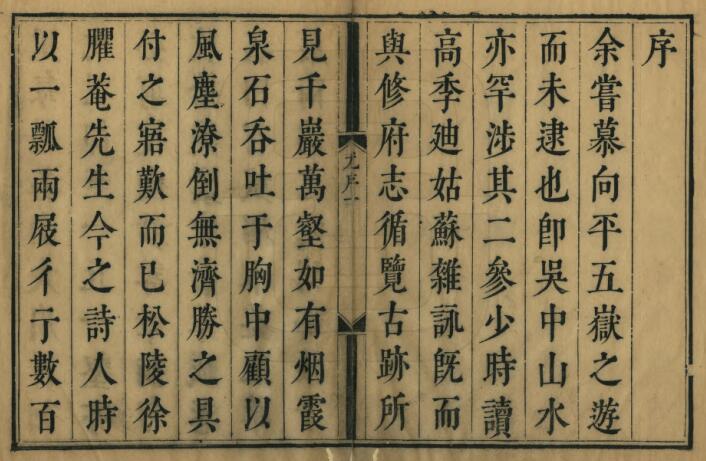 序
余嘗慕向平五嶽之遊
而未逮也卽吳中山水
亦罕涉其二參少時讀
高季廸姑蘇雜詠旣而
與修府志循覽古跡所
尤序一
見千巖萬壑如有烟霞
泉石吞吐于胸中顧以
風塵潦倒無濟勝之具
付之寤歎而已松陵徐
臞菴先生今之詩人時
以一瓢兩屐彳亍數百